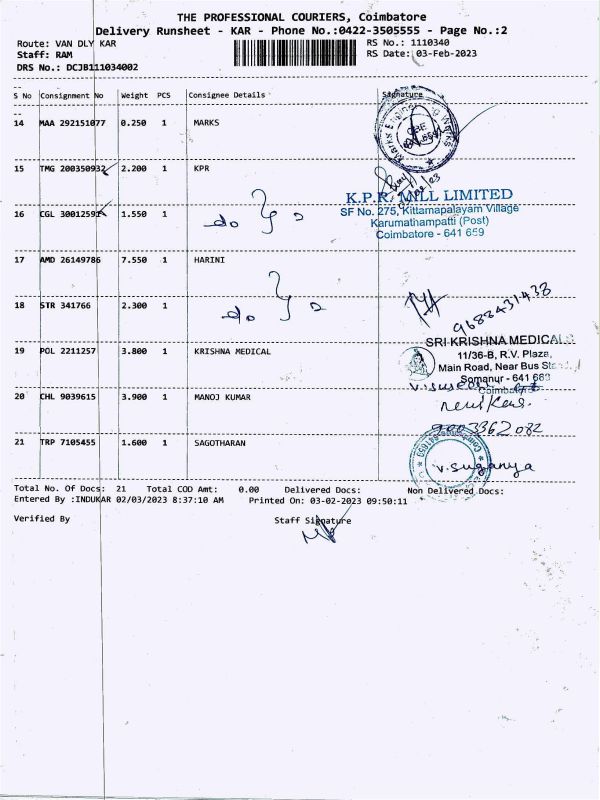 THE PROFESSIONAL COURIERS, Coimbatore
Delivery Runsheet - KAR - Phone No.:0422-3505555 - Page No.:2
Route: VAN DLY KAR RS No.: 1110340
Staff: RAM RS Date: 03-Feb-2023
DRS No.: DCJB111034002
S No Consignment No Weight PCS Consignee Details Signature
14 MAA 292151077 0.250 1 MARKS
Marks Engineering Works
CBE
15 TMG 200350932 2.200 1 KPR
K.P.R. MILL LIMITED
SF No. 275, Kittamapalayam Village
Karumathampatti (Post)
Coimbatore - 641 659
16 CGL 30012591 1.550 1 do
17 AMD 26149786 7.550 1 HARINI
18 STR 341766 2.300 1 do
9688431438
19 POL 2211257 3.800 1 KRISHNA MEDICAL
SRI KRISHNA MEDICALS
11/36-B, R.V. Plaza,
Main Road, Near Bus Stand,
Somanur - 641 668
Coimbatore
20 CHL 9039615 3.900 1 MANOJ KUMAR
9003362082
21 TRP 7105455 1.600 1 SAGOTHARAN
v.suganya
Total No. Of Docs: 21 Total COD Amt: 0.00 Delivered Docs: Non Delivered Docs:
Entered By :INDUKAR 02/03/2023 8:37:10 AM Printed On: 03-02-2023 09:50:11
Verified By Staff Signature